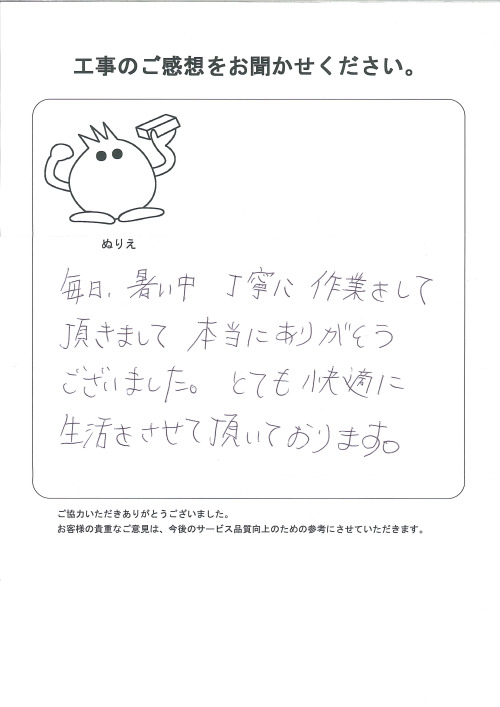 工事のご感想をお聞かせください。
ぬりえ
毎日、暑い中 丁寧に 作業をして
頂きまして 本当にありがとう
ございました。 とても快適に
生活をさせて頂いております。
ご協力いただきありがとうございました。
お客様の貴重なご意見は、今後のサービス品質向上のための参考にさせていただきます。